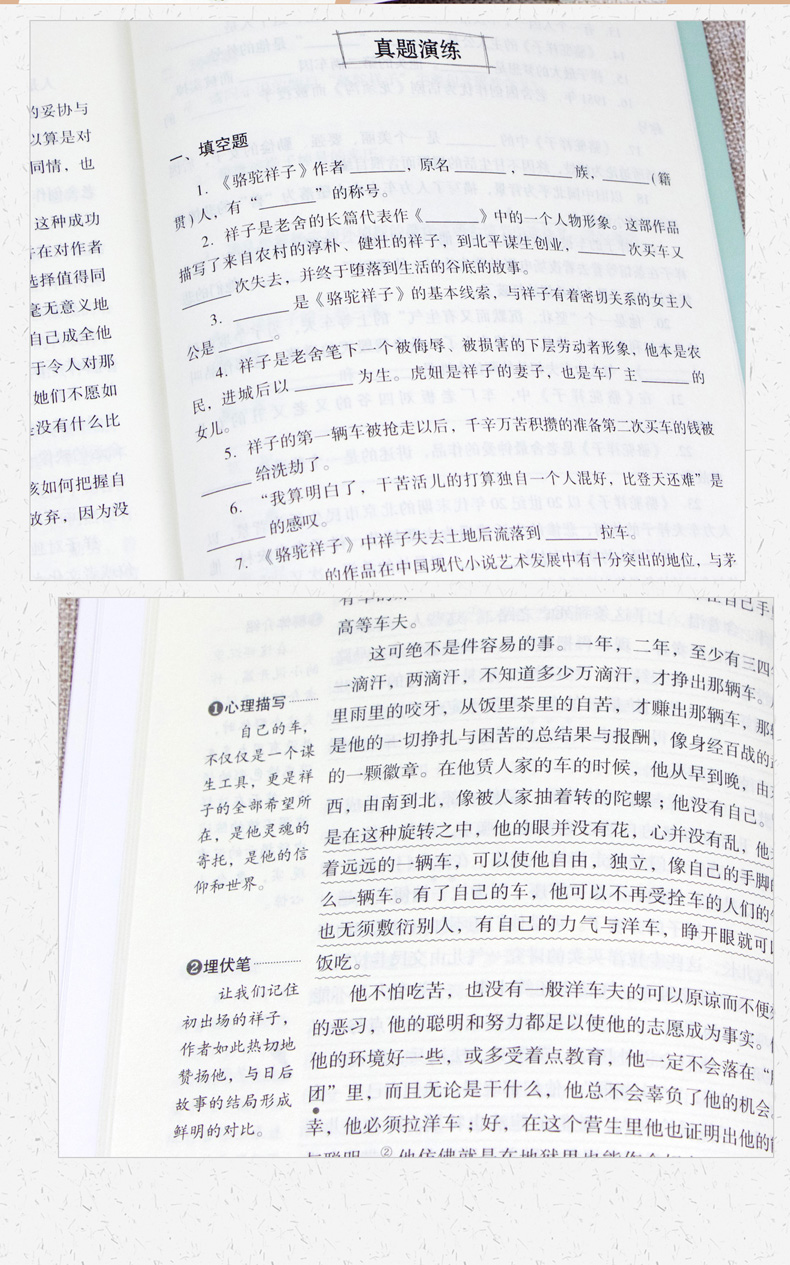 真题演练
的妥协与
以算是对
同情，也
这种成功
在对作者
选择值得同
毫无意义地
自己成全他
于令人对那
她们不愿如
是没有什么比
该如何把握自
放弃，因为没
一、填空题
1. 《骆驼祥子》作者______，原名______，______族，______(籍
贯)人，有“______”的称号。
2. 祥子是老舍的长篇代表作《______》中的一个人物形象。这部作品
描写了来自农村的淳朴、健壮的祥子，到北平谋生创业，______次买车又
______次失去，并终于堕落到生活的谷底的故事。
3. ______是《骆驼祥子》的基本线索，与祥子有着密切关系的女主人
公是______。
4. 祥子是老舍笔下一个被侮辱、被损害的下层劳动者形象，他本是农
民，进城后以______为生。虎妞是祥子的妻子，也是车厂主______的
女儿。
5. 祥子的第一辆车被抢走以后，千辛万苦积攒的准备第二次买车的钱被
______给洗劫了。
6. “我算明白了，干苦活儿的打算独自一个人混好，比登天还难”是
______的感叹。
7. 《骆驼祥子》中祥子失去土地后流落到______拉车。
______的作品在中国现代小说艺术发展中有十分突出的地位，与茅
❶心理描写
自己的车，
不仅仅是一个谋
生工具，更是祥
子的全部希望所
在，是他灵魂的
寄托，是他的信
仰和世界。
❷埋伏笔
让我们记住
初出场的祥子，
作者如此热切地
赞扬他，与日后
故事的结局形成
鲜明的对比。
高等车夫。
这可绝不是件容易的事。一年，二年，至少有三四
一滴汗，两滴汗，不知道多少万滴汗，才挣出那辆车。
里雨里的咬牙，从饭里茶里的自苦，才赚出那辆车，那
是他的一切挣扎与困苦的总结果与报酬，像身经百战的
的一颗徽章。在他赁人家的车的时候，他从早到晚，由
西，由南到北，像被人家抽着转的陀螺；他没有自己。
是在这种旋转之中，他的眼并没有花，心并没有乱，他
着远远的一辆车，可以使他自由，独立，像自己的手脚
么一辆车。有了自己的车，他可以不再受拴车的人们的
也无须敷衍别人，有自己的力气与洋车，睁开眼就可
饭吃。
他不怕吃苦，也没有一般洋车夫的可以原谅而不便
的恶习，他的聪明和努力都足以使他的志愿成为事实。
他的环境好一些，或多受着点教育，他一定不会落在“
团”里，而且无论是干什么，他总不会辜负了他的机会。
幸，他必须拉洋车；好，在这个营生里他也证明出他的